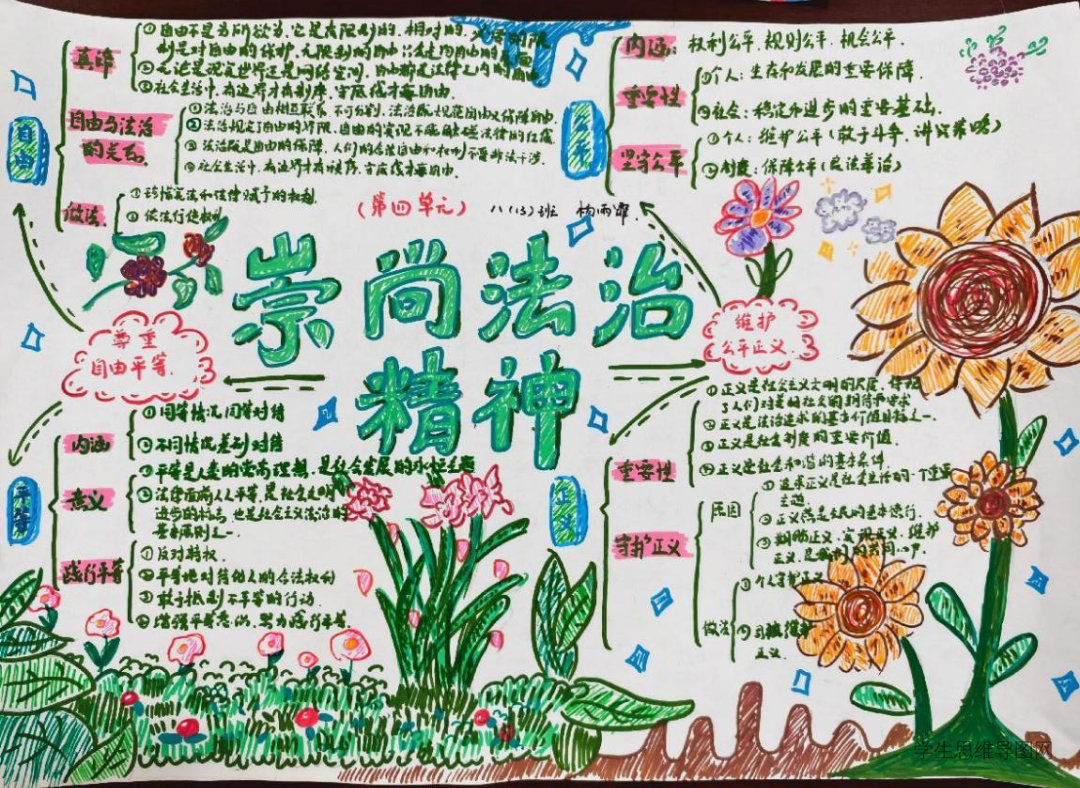 (第四单元) 八(13)班
崇尚法治
精神
尊重
自由平等
自由
真谛
①自由不是为所欲为,它是有限制的、相对的,
制是对自由的保护,无限制的自由
②无论是现实世界还是网络空间,自由都是法律之内的自由
③社会生活中,有边界才有秩序,守底线才享自由.
自由与法治
的关系
①法治与自由相互联系、不可分割,法治既规范自由又保障自由.
②法治规定了自由的界限,自由的实现不能触碰法律的红线
③法治既是自由的保障,人们的合法自由和权利不受非法干涉.
④社会生活中,有边界才有秩序,守底线才享自由.
做法
①珍惜宪法和法律赋予的权利
②依法行使权利
平等
内涵
①同等情况同等对待
②不同情况差别对待
意义
①平等是人类的崇高理想,是社会发展的永恒主题
②法律面前人人平等,是社会文明
进步的标志,也是社会主义法治的
基本原则之一.
践行平等
①反对特权
②平等地对待他人的合法权利
③敢于抵制不平等的行动
④增强平等意识,努力践行平等.
维护
公平正义
公平
内涵:权利公平、规则公平、机会公平.
重要性
①个人:生存和发展的重要保障.
②社会:稳定和进步的重要基础.
坚守公平
①个人:维护公平(敢于斗争,讲究策略)
②制度:保障公平(良法善治)
正义
重要性
①正义是社会主义文明的尺度,体现
了人们对美好社会的期待和追求
②正义是法治追求的基本价值目标之一.
③正义是社会制度的重要价值.
④正义是社会和谐的基本条件
守护正义
原因
①追求正义是社会生活的一个重要
主题
②正义感是公民的基本德行.
③期盼正义、实现正义、维护
正义,是我们的共同心声.
做法
①个人守护正义
②司法维护
正义.
学生思维导图网